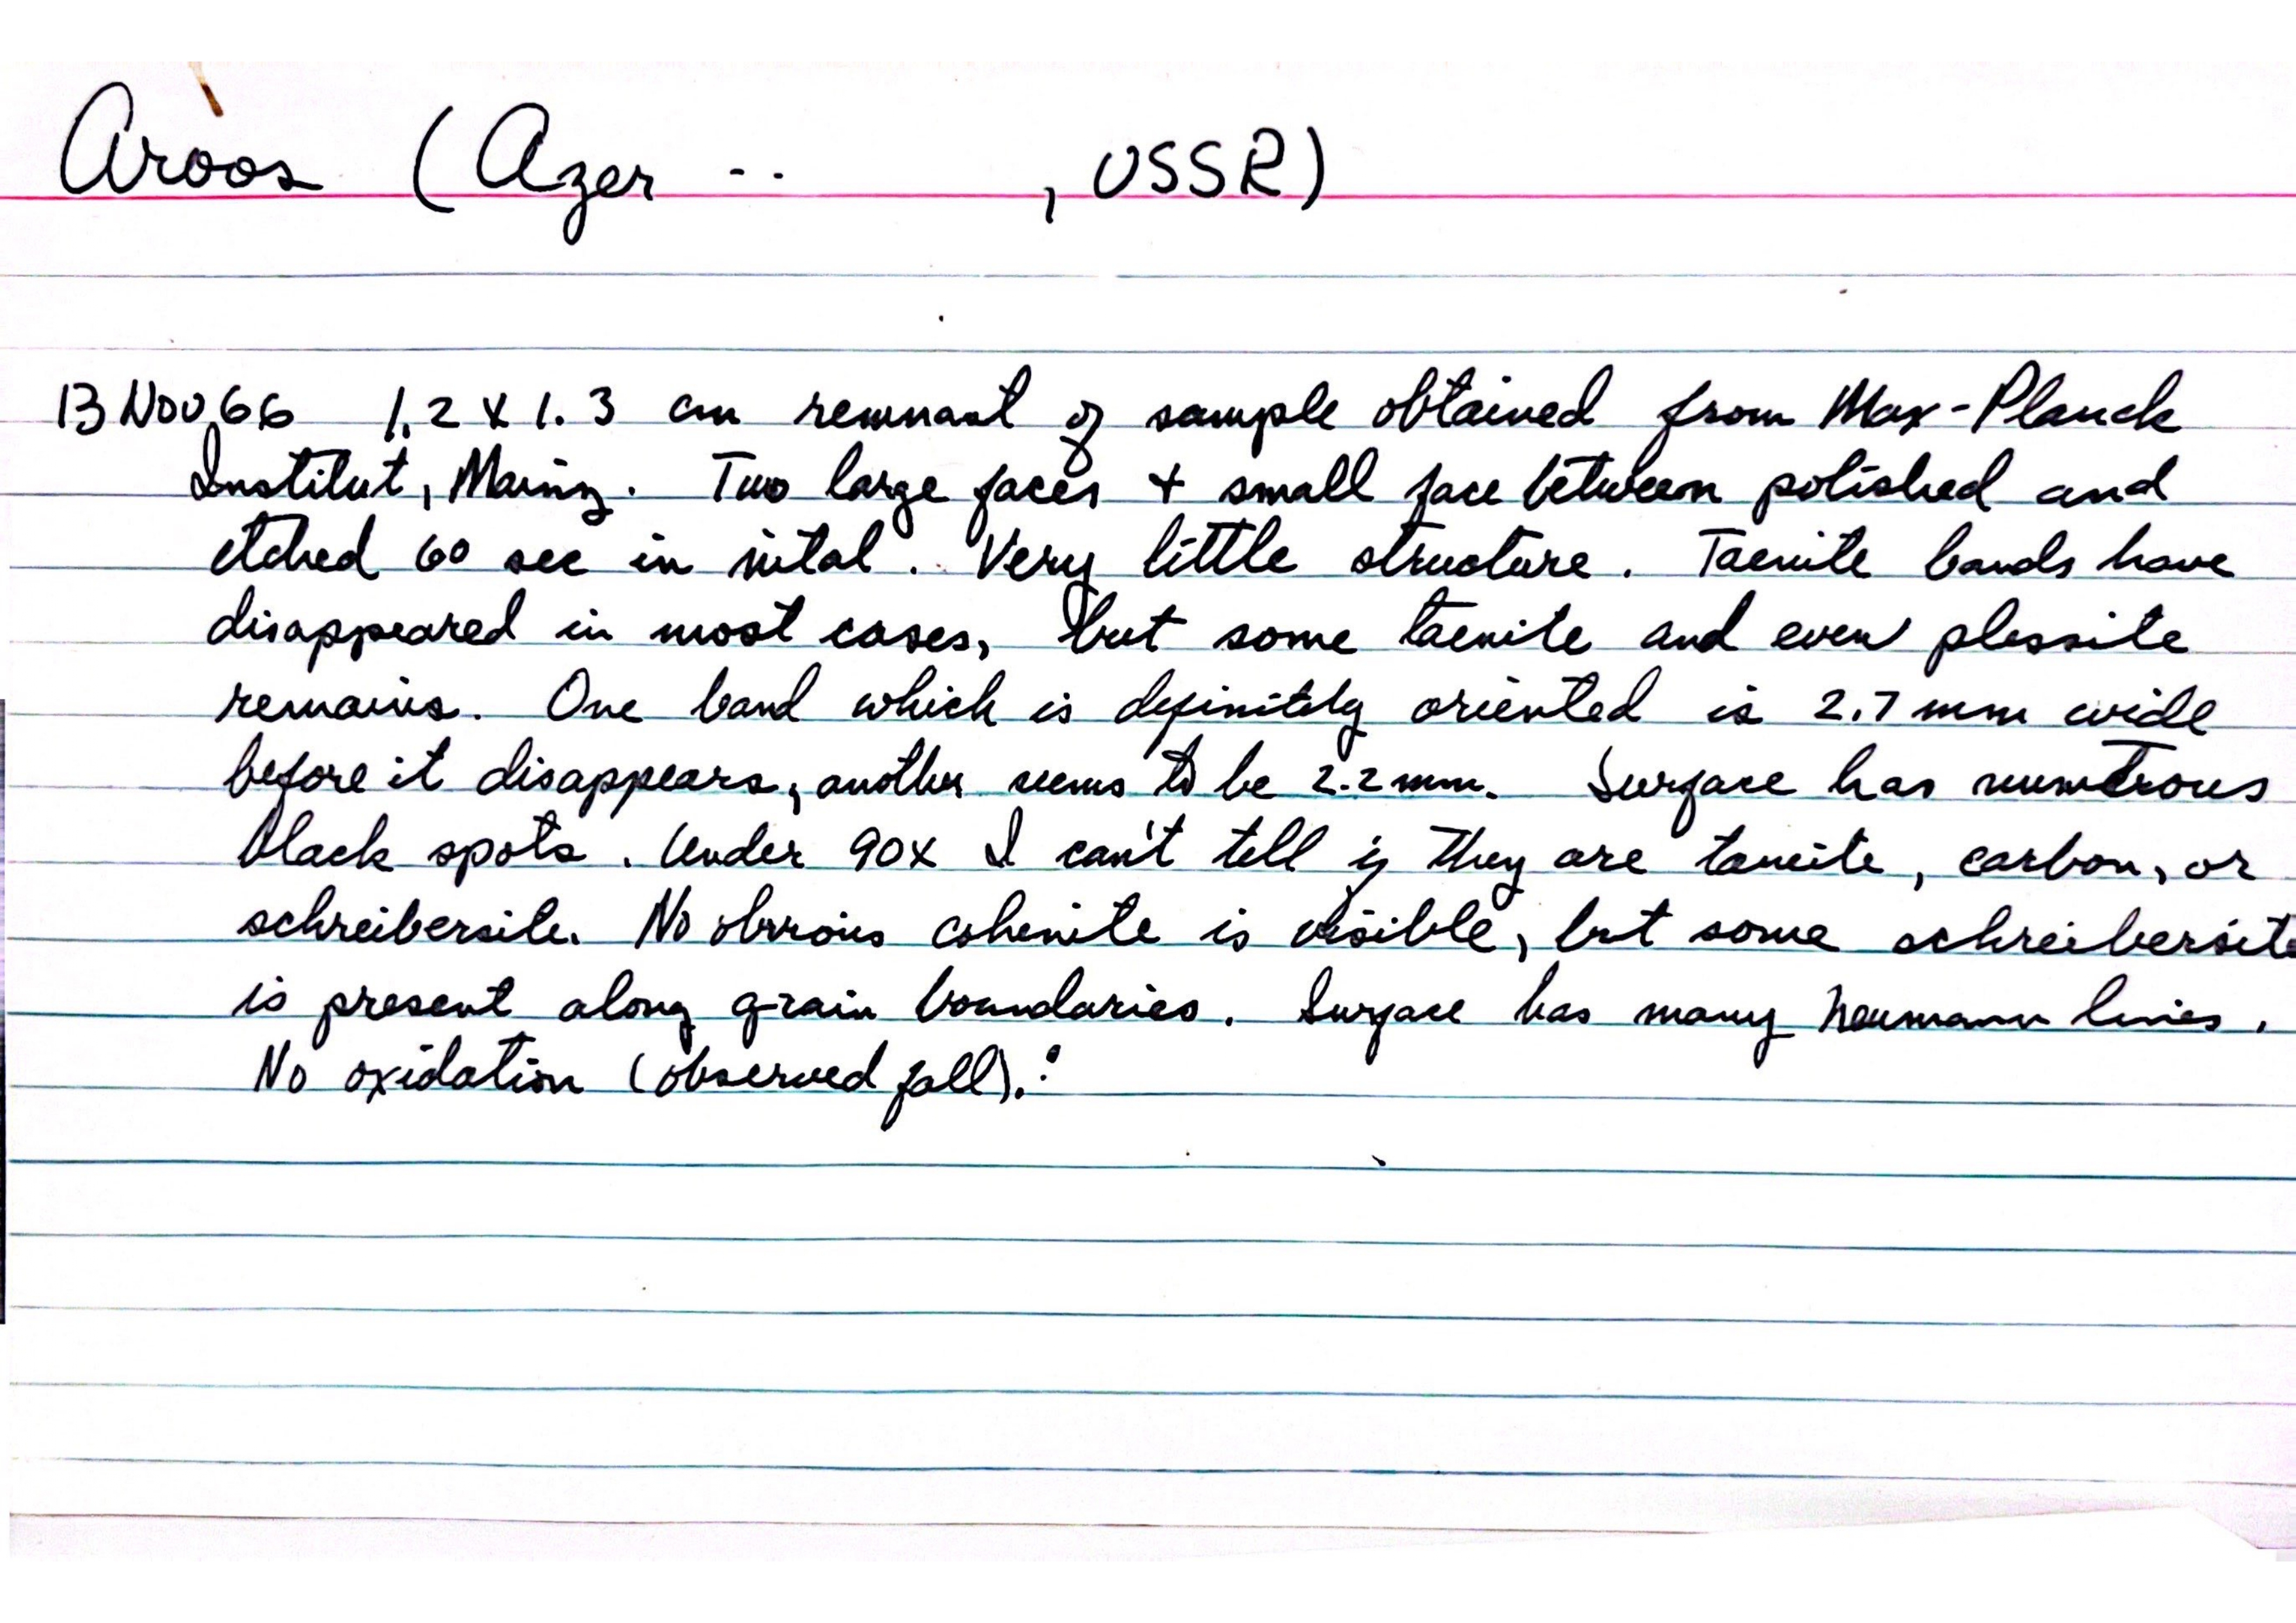 Aroos (Azer -- , USSR)
13 Nov 66 1.2 x 1.3 cm remnant of sample obtained from Max-Planck
Institut, Mainz. Two large faces + small face between polished and
etched 60 sec in nital. Very little structure. Taenite bands have
disappeared in most cases, but some taenite and even plessite
remains. One band which is definitely oriented is 2.7 mm wide
before it disappears, another seems to be 2.2 mm. Surface has numerous
black spots. Under 90x I can't tell if they are taneite, carbon, or
schreibersite. No obvious cohenite is visible, but some schreibersite
is present along grain boundaries. Surface has many Neumann lines.
No oxidation (observed fall).